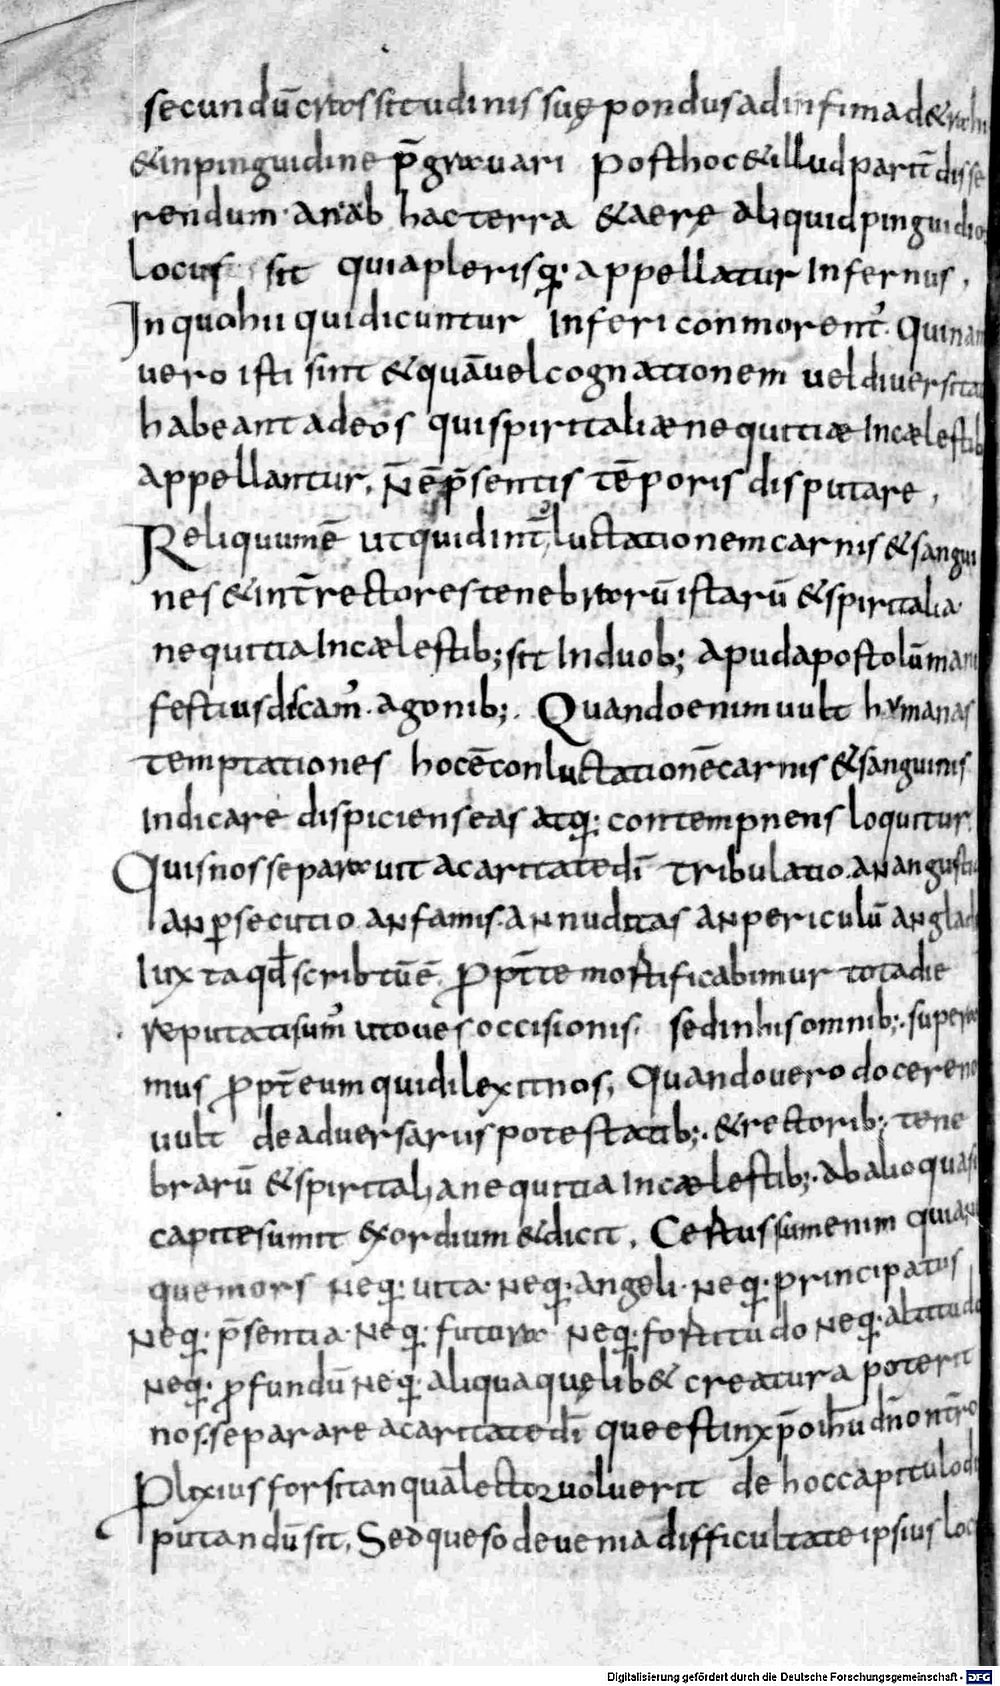 secundū crassitudinis suę pondus ad infima d&rahi
& in pinguidine p̄grauari post hoc & illud partī disse
rendum. an ab hac terra & aere aliquid pinguidio
locus sit qui a plerisq; appellatur Infernus,
In quo hii qui dicuntur Inferi conmorent᷒. Quinam
uero isti sint & quā uel cognationem uel diuersitat
habeant ad eos qui spiritaliæ nequitiæ In cælestib
appellantur, n̄ ē p̄sentis tēporis disputare,
Reliquum ē ut quid int̄ luctationem carnis & sangui
nes & int̄ rectores tenebrarū istarū & spiritalia
nequitia In cælestib; sit In duob; apud apostolū mani
festius dicam᷒. agonib;. Quando enim uult hymanas
temptationes hoc ē conluctationē carnis & sanguinis
Indicare dispiciens eas atq; contempnens loquitur.
Quis nos separauit a caritate dī tribulatio. an angustia
an ꝑsecutio an famis. an nuditas an periculū an glad
Iuxta qd̄ scribtū ē, ꝓpt̄ te mortificabimur tota die
reputati sum᷒ ut oues occisionis. sed in his omnib;. supera
mus ꝓpt̄ eum qui dilexit nos, Quando uero docere no
uult de aduersariis potestatib;. & rectorib; tene
brarū & spiritalia nequitia In cælestib;. ab alio quasi
capite sumit exordium & dicit, Certus sum enim quia n
que mors neq; uita. neq; angeli. neq; principatus,
neq; p̄sentia. neq; futura neq; fortitudo neq; altitudo
neq; ꝓfundū neq; aliqua quęlib& creatura poterit
nos separare a caritate dī que est in xp̄o ihū dn̄o nt̄ro
Prolixius forsitan quā lector uoluerit de hoc capitulo di
putandū sit, Sed queso de uenia difficultate ipsius loc
Digitalisierung gefördert durch die Deutsche Forschungsgemeinschaft - DFG